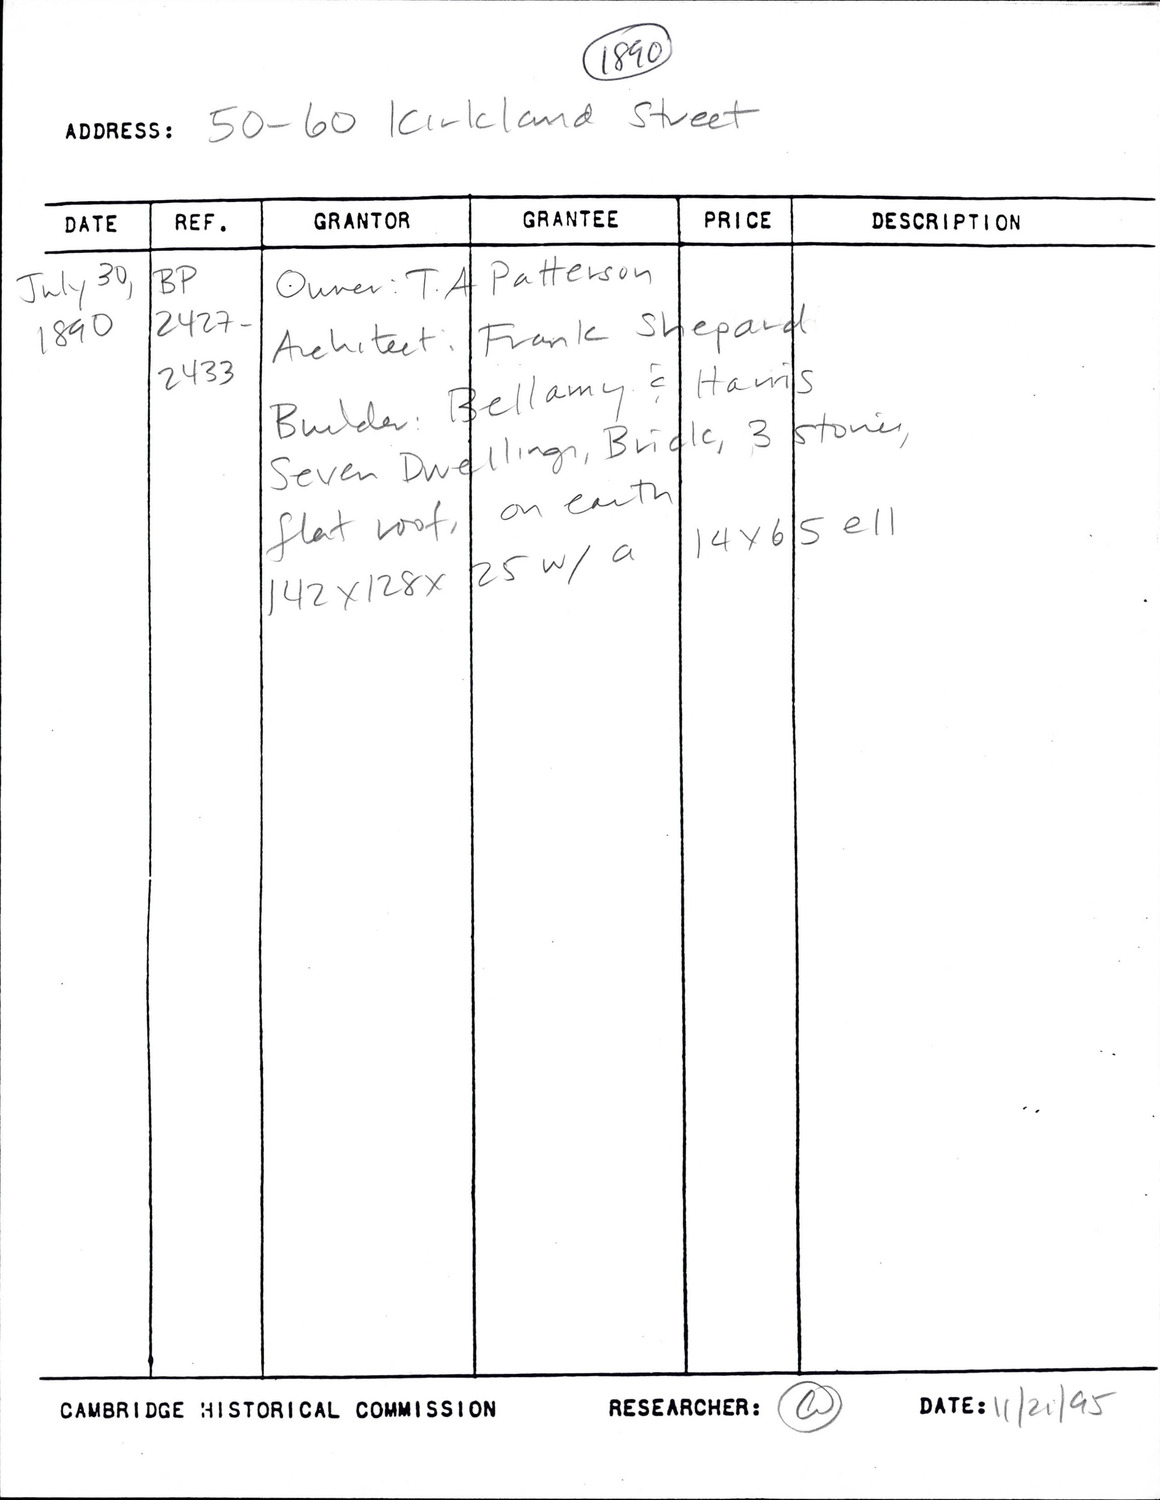 1890
ADDRESS: 50-60 Kirkland Street
DATE REF. GRANTOR GRANTEE PRICE DESCRIPTION
July 30, 1890 BP 2427-2433
Owner: T.A Patterson
Architect: Frank Shepard
Builder: Bellamy & Harris
Seven Dwellings, Brick, 3 stories,
flat roof, on earth
142x128x25 w/ a 14x65 ell
CAMBRIDGE HISTORICAL COMMISSION RESEARCHER: DATE: 11/21/95